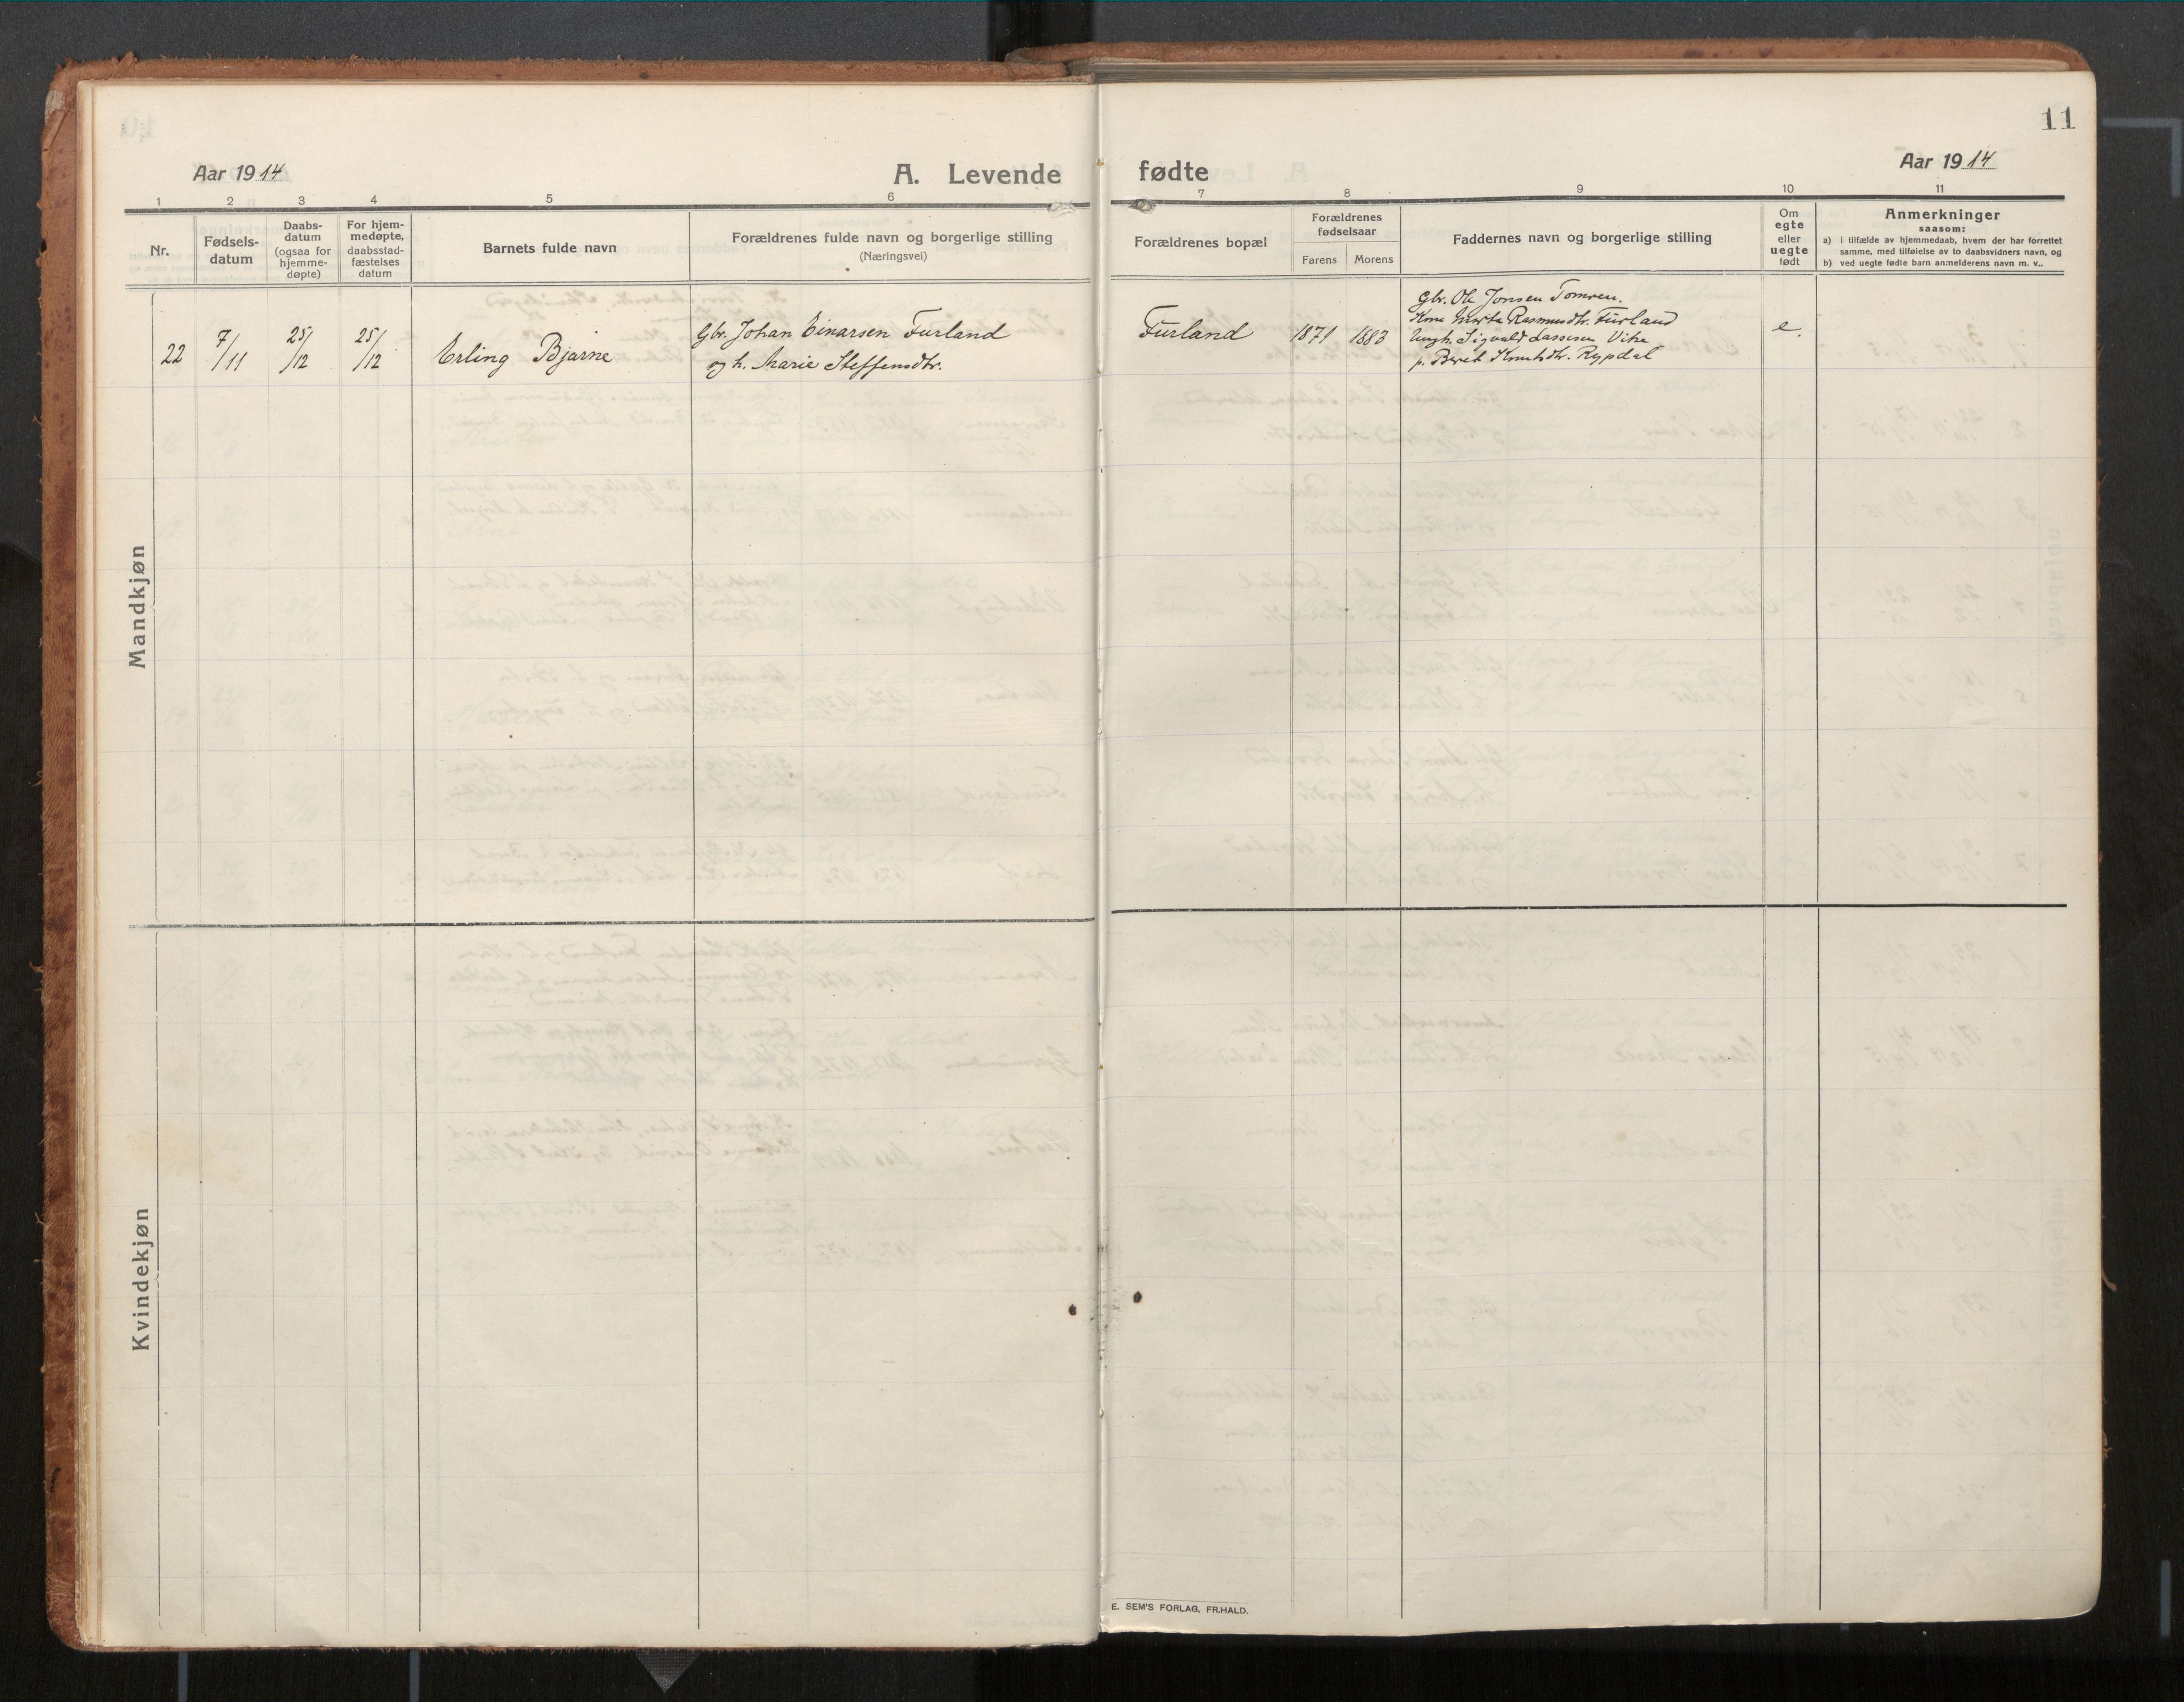 11
Aar 1914
A. Levende fødte
Aar 1914
1 2 3 4 5 6 7 8 9 10 11
Nr.
Fødsels-
datum
Daabs-
datum
(ogsaa for
hjemme-
døpte)
For hjem-
medøpte,
daabsstad-
fæstelses
datum
Barnets fulde navn
Forældrenes fulde navn og borgerlige stilling
(Næringsvei)
Forældrenes bopæl
Forældrenes
fødselsaar
Farens Morens
Faddernes navn og borgerlige stilling
Om
egte
eller
uegte
født
Anmerkninger
saasom:
a) i tilfælde av hjemmedaab, hvem der har forrettet
samme, med tilføielse av to daabsvidners navn, og
b) ved uegte fødte barn anmelderens navn m. v..
Mandkjøn
22
7/11
25/12
25/12
Erling Bjarne
Gbr. Johan Einarsen Furland
og h. Marie Steffensdtr.
Furland
1871 1883
Gbr. Ole Jonsen Tomren.
Kone Marta Rasmusdtr. Furland
Ungk. Sigvald Lassesen Vike
p. Berit Knutsdtr. Rypdal
e.
Kvindekjøn
E. SEM'S FORLAG, FR.HALD.